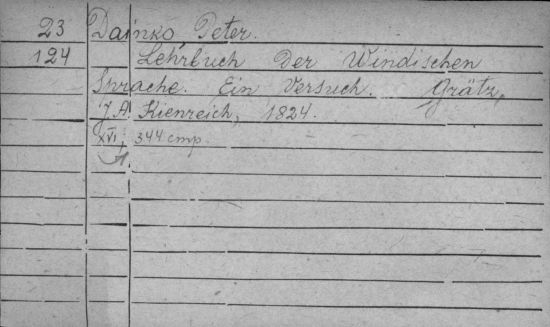 23 Dainko, Peter.
124 Lehrbuch der Windischen
Sprache. Ein Versuch. Grätz,
J. A. Kienreich, 1824.
XVI, 344 стр.